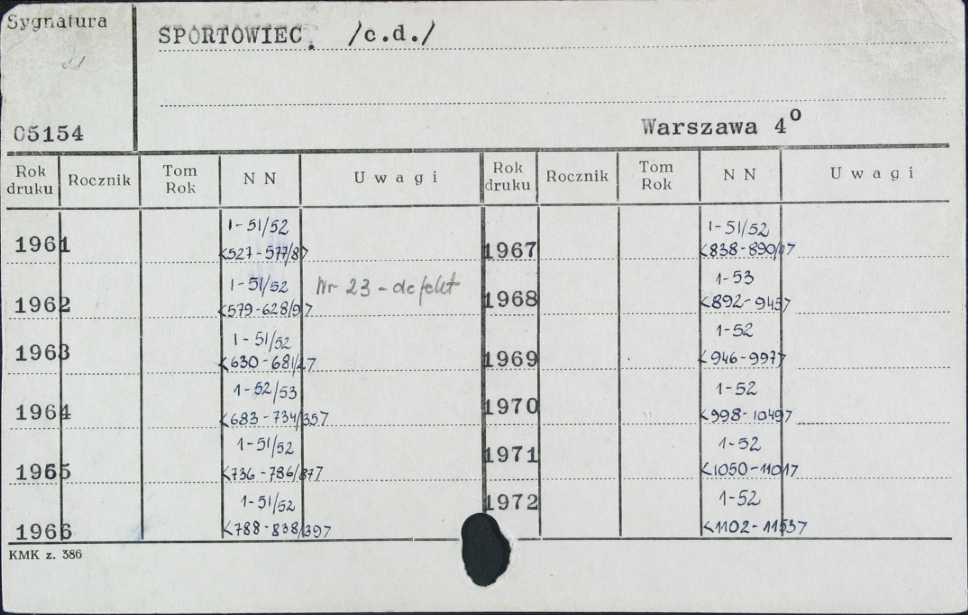 Sygnatura
SPORTOWIEC. /c.d./
05154
Warszawa 4°
Rok druku Rocznik Tom Rok N N Uwagi Rok druku Rocznik Tom Rok N N Uwagi
1961 1-51/52 <527-577/8>
1962 1-51/52 <579-628/9> Nr 23 - defekt
1963 1-51/52 <630-681/2>
1964 1-52/53 <683-734/35>
1965 1-51/52 <736-786/87>
1966 1-51/52 <788-838/39>
1967 1-51/52 <838-890/1>
1968 1-53 <892-945>
1969 1-52 <946-997>
1970 1-52 <998-1049>
1971 1-52 <1050-1101>
1972 1-52 <1102-1153>
KMK z. 386